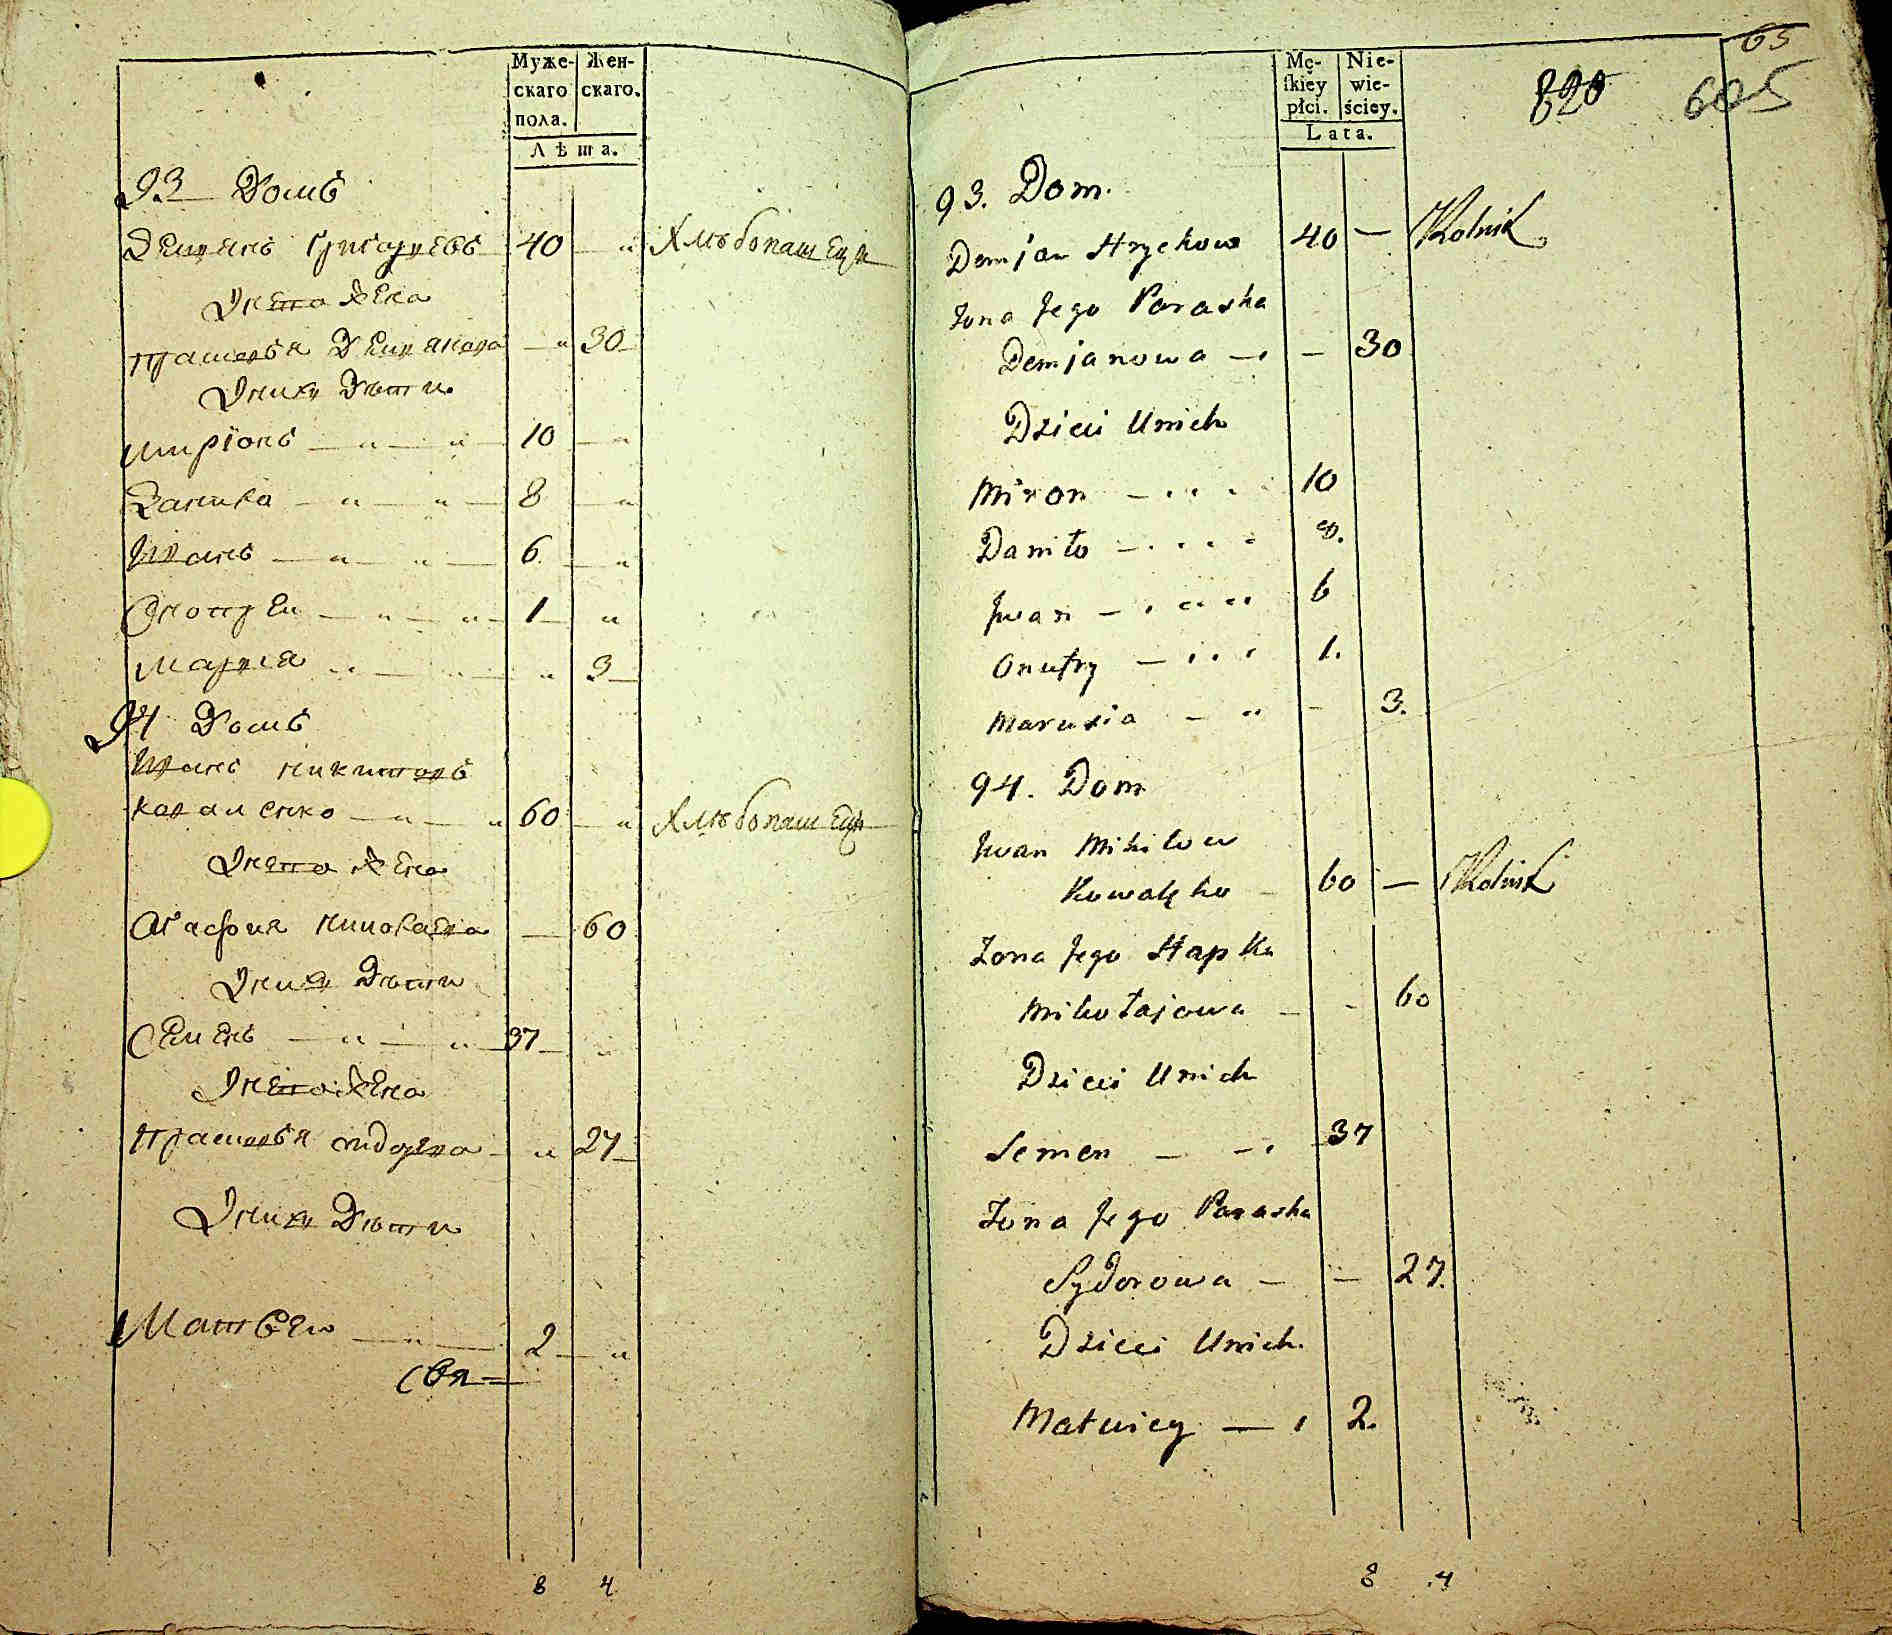 Муже- Жен-
скаго скаго.
пола.
Лѣта.
93 Домъ
Демянъ Григоревъ 40 — " Хлѣбопашецъ
Унего жена
Прасковья Демянова — " 30
Унихъ Дѣти
Миріонъ — " — " — 10 — "
Данила — " — " — 8 — "
Иванъ — " — " — 6 — "
Онопрей — " — " — 1 — "
Марья " — " — " 3
94 Домъ
Иванъ Никитовъ
Коваленко — " — " 60 — " Хлѣбопашецъ
Унего жена
Агафия Николаева — 60
Унихъ Дѣти
Семенъ — " — " — 37 — "
Унего жена
Прасковья Сидорева — " 27
Унихъ Дѣти
Матвей — " — 2 — "
8 4
65
820 605
Mę- Nie-
skiey wie-
płci. ściey.
Lata.
93. Dom.
Demjan Hryckow 40 — Rolnik
Żona Jego Paraska
Demjanowa — — 30
Dzieci Unich
Miron — 10
Daniło — 8.
Jwan — 6
Onufry — 1.
Marusia — " — 3.
94. Dom
Jwan Mikitow
Kowalęko — 60 — Rolnik
Żona Jego Hapka
Mikołajowa — — 60
Dzieci Unich
Semen — — 37
Żona Jego Paraska
Sydorowa — — 27.
Dzieci Unich.
Matwiey — 2.
8 4